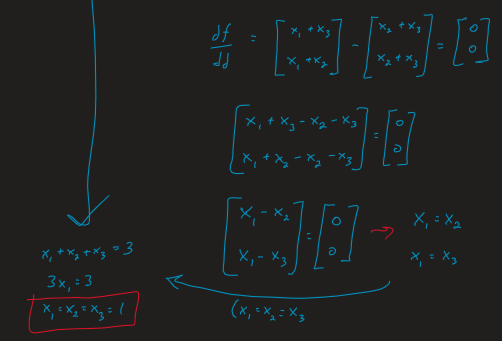 df/dd = [x₁ + x₃; x₁ + x₂] - [x₂ + x₃; x₂ + x₃] = [0; 0]
[x₁ + x₃ - x₂ - x₃; x₁ + x₂ - x₂ - x₃] = [0; 0]
[x₁ - x₂; x₁ - x₃] = [0; 0] → x₁ = x₂
x₁ = x₃
(x₁ = x₂ = x₃
x₁ + x₂ + x₃ = 3
3x₁ = 3
x₁ = x₂ = x₃ = 1